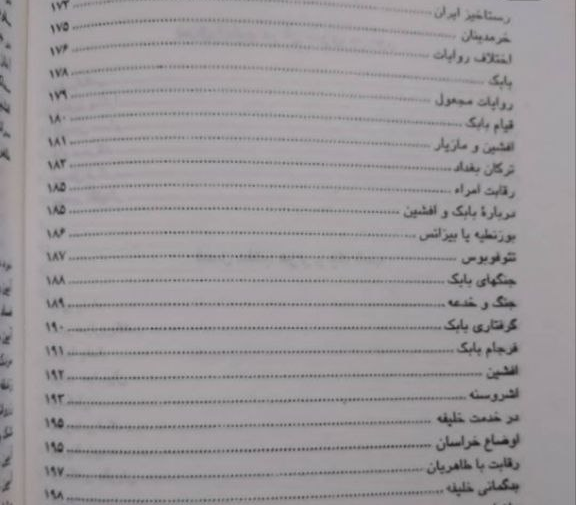 رستاخیز ایران ۱۷۳
خرمدینان ۱۷۵
اختلاف روایات ۱۷۶
بابک ۱۷۸
روایات مجعول ۱۷۹
قیام بابک ۱۸۰
افشین و مازیار ۱۸۱
ترکان بغداد ۱۸۳
رقابت امراء ۱۸۵
دربارۀ بابک و افشین ۱۸۵
بوزنطیه یا بیزانس ۱۸۶
تئوفوبوس ۱۸۷
جنگهای بابک ۱۸۸
جنگ و خدعه ۱۸۹
گرفتاری بابک ۱۹۰
فرجام بابک ۱۹۱
افشین ۱۹۲
اشروسنه ۱۹۳
در خدمت خلیفه ۱۹۵
اوضاع خراسان ۱۹۵
رقابت با طاهریان ۱۹۷
بدگمانی خلیفه ۱۹۸